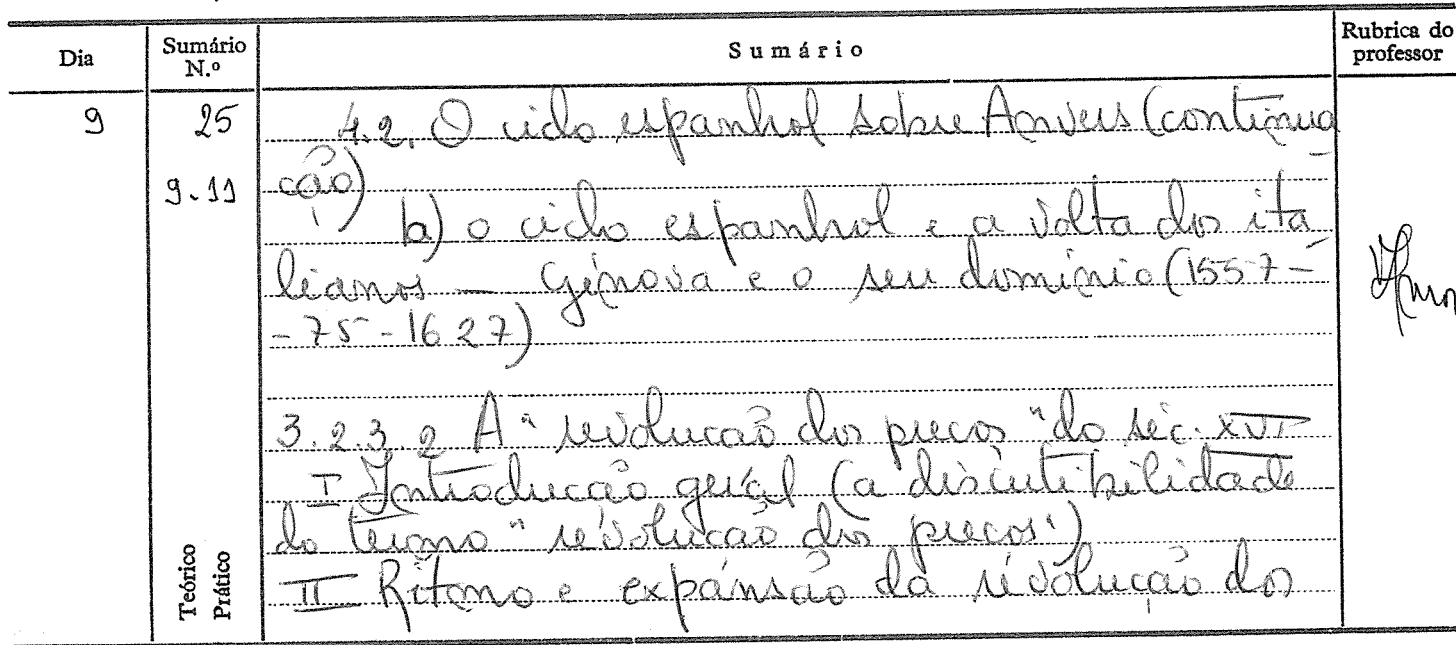 Dia Sumário N.º Sumário Rubrica do professor
9 25 4.2. O ciclo espanhol sobre Anvers (continua
9.11 ção)
b) o ciclo espanhol e a volta dos ita
lianos — Génova e o seu domínio (1557-
- 75 - 1627)
3.2.3.2 A "revolução dos preços" do séc. XVI
I Introdução geral (a discutibilidade
do termo "revolução dos preços")
II Ritmo e expansão da revolução dos
Teórico
Prático